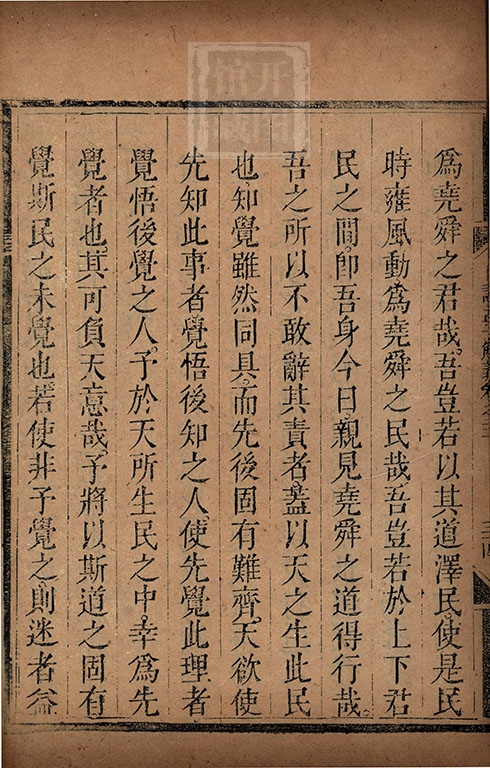 爲堯舜之君哉。吾豈若以其道澤民、使是民
時雍風動爲堯舜之民哉吾豈若於上下君
民之間卽吾身今日、親見堯舜之道得行哉。
吾之所以不敢辭其責者、蓋以天之生此民
也、知覺雖然同具、而先後固有難齊、天欲使
先知此事者覺悟後知之人、使先覺此理者
覺悟後覺之人、予於天所生民之中、幸爲先
覺者也、其可負天意哉、予將以斯道之固有
覺斯民之未覺也、若使非予覺之則迷者益